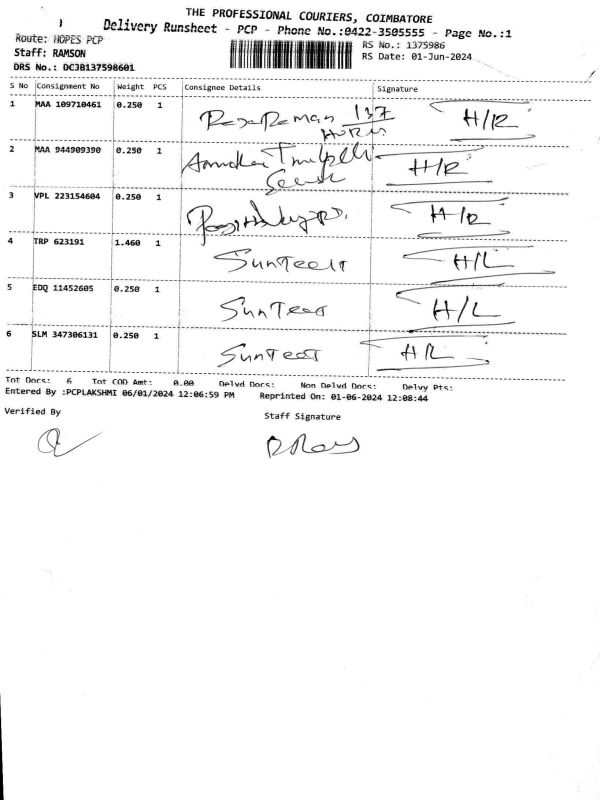 THE PROFESSIONAL COURIERS, COIMBATORE
Delivery Runsheet - PCP - Phone No.:0422-3505555 - Page No.:1
Route: HOPES PCP
RS No.: 1375986
Staff: RAMSON
RS Date: 01-Jun-2024
DRS No.: DCJB137598601
S No Consignment No Weight PCS Consignee Details Signature
1 MAA 109710461 0.250 1 137 H/R
2 MAA 944909390 0.250 1 H/R
3 VPL 223154604 0.250 1 H/R
4 TRP 623191 1.460 1 SunTech H/L
5 EDQ 11452605 0.250 1 H/L
6 SLM 347306131 0.250 1 H/R
Tot Docs: 6 Tot COD Amt: 0.00 Delvd Docs: Non Delvd Docs: Delvy Pts:
Entered By :PCPLAKSHMI 06/01/2024 12:06:59 PM Reprinted On: 01-06-2024 12:08:44
Verified By
Staff Signature